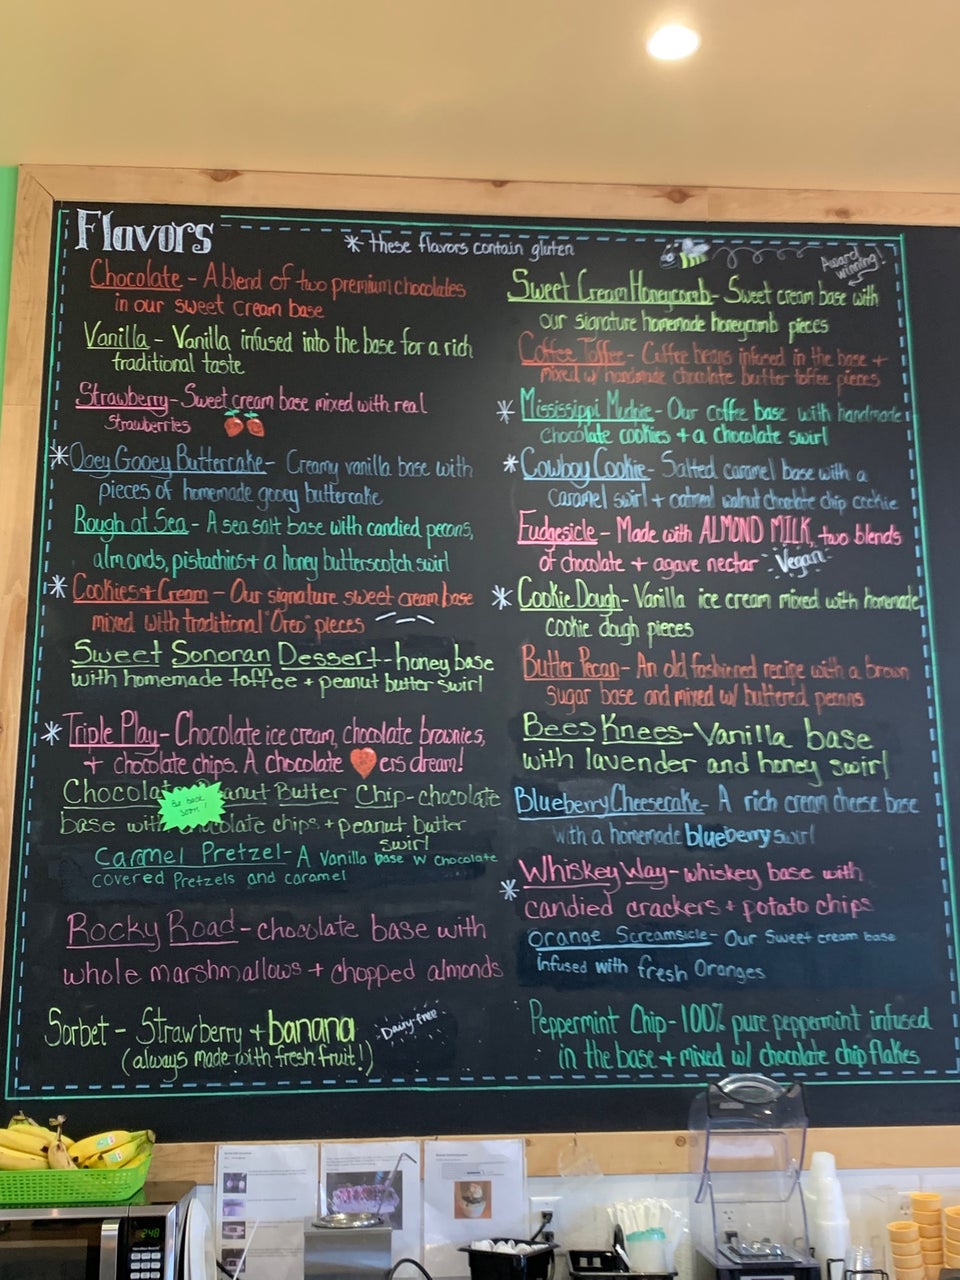 Flavors
* these flavors contain gluten
Chocolate - A blend of two premium chocolates
in our sweet cream base
Vanilla - Vanilla infused into the base for a rich
traditional taste
Strawberry - Sweet cream base mixed with real
strawberries
* Ooey Gooey Buttercake - Creamy vanilla base with
pieces of homemade gooey buttercake
Rough at Sea - A sea salt base with candied pecans,
almonds, pistachios + a honey butterscotch swirl
* Cookies + Cream - Our signature sweet cream base
mixed with traditional "Oreo" pieces
Sweet Sonoran Dessert - honey base
with homemade toffee + peanut butter swirl
* Triple Play - Chocolate ice cream, chocolate brownies,
+ chocolate chips. A chocolate ers dream!
Peanut Butter Chip - chocolate
base with chips + peanut butter
swirl
Caramel Pretzel - A Vanilla base w chocolate
covered Pretzels and caramel
Rocky Road - chocolate base with
whole marshmallows + chopped almonds
Sorbet - Strawberry + banana
(always made with fresh fruit!)
Dairy-free
Award
winning!
Sweet Cream Honeycomb - Sweet cream base with
our signature homemade honeycomb pieces
Coffee Toffee - Coffee beans infused in the base +
mixed w/ handmade chocolate butter toffee pieces
* Mississippi Mudpie - Our coffee base with handmade
chocolate cookies + a chocolate swirl
* Cowboy Cookie - Salted caramel base with a
caramel swirl + oatmeal walnut chocolate chip cookie
Fudgesicle - Made with ALMOND MILK, two blends
of chocolate + agave nectar Vegan
* Cookie Dough - Vanilla ice cream mixed with homemade
cookie dough pieces
Butter Pecan - An old fashioned recipe with a brown
sugar base and mixed w/ buttered pecans
Bees Knees - Vanilla base
with lavender and honey swirl
Blueberry Cheesecake - A rich cream cheese base
with a homemade blueberry swirl
* Whiskey Way - whiskey base with
candied crackers + potato chips
Orange Screamsicle - Our Sweet cream base
infused with fresh Oranges
Peppermint Chip - 100% pure peppermint infused
in the base + mixed w/ chocolate chip flakes
2:48